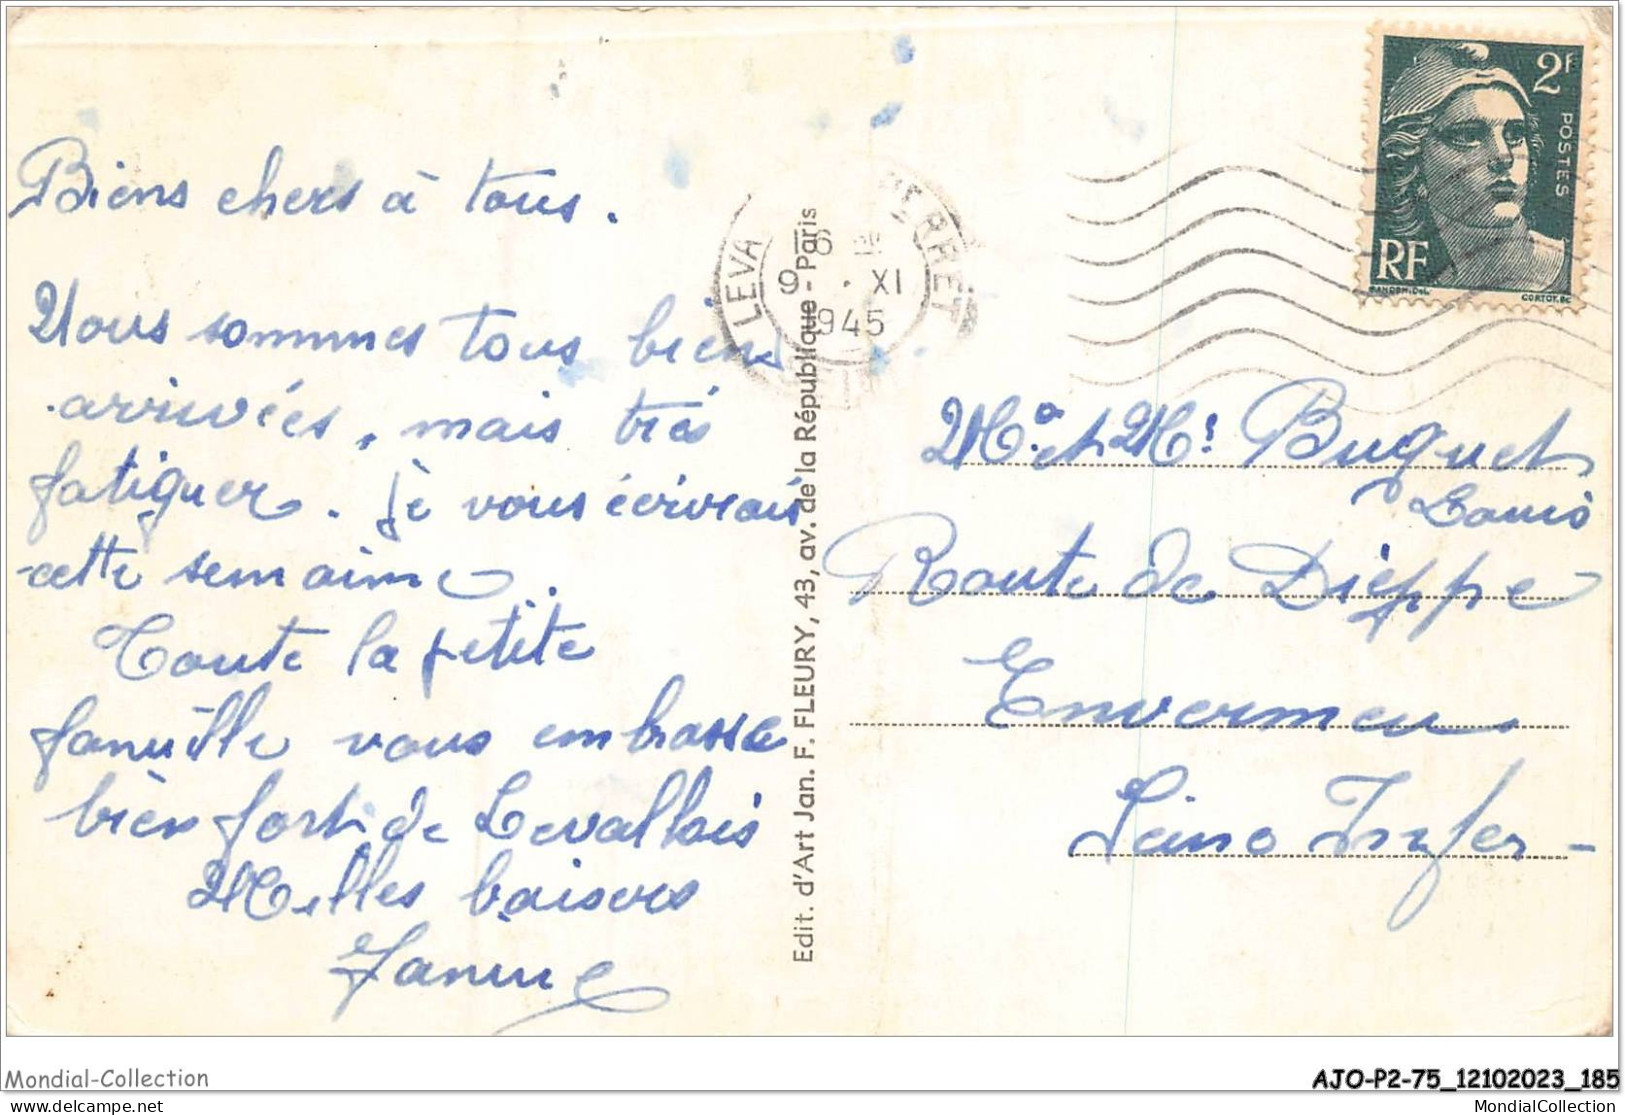 Biens chers à tous.
Nous sommes tous biens
arrivées, mais trés
fatiguer. Je vous écrivrais
cette semaine.
Toute la petite
famille vous embrasse
bien fort de Levallois
Milles baisers
Janine
Edit. d'Art Jan. F. FLEURY, 43, av. de la République - Paris
LEVA PERRET
16
9 . XI
1945
2F
POSTES
RF
GANDON. DEL
CORTOT. SC
Me et Mr Buquet
Louis
Route de Dieppe
Envermeu
Seine Infer-
Mondial-Collection
AJO-P2-75_12102023_185
delcampe.net
MondialCollection